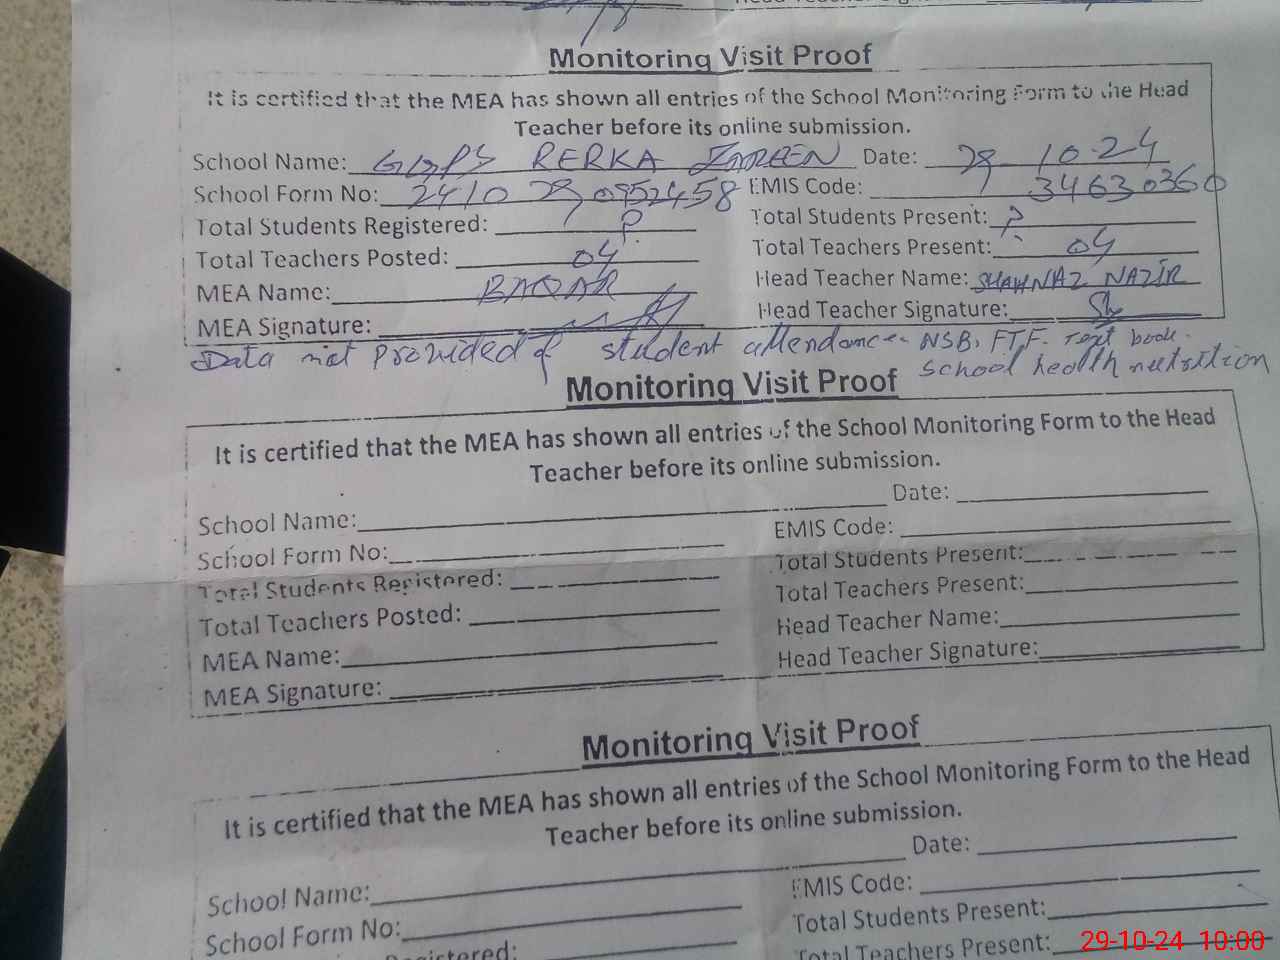 Monitoring Visit Proof
It is certified that the MEA has shown all entries of the School Monitoring Form to the Head
Teacher before its online submission.
School Name: GGPS RERKA ZAREEN Date: 29-10-24
School Form No: 2410 29 0952458 EMIS Code: 34630360
Total Students Registered: ? Total Students Present: ?
Total Teachers Posted: 04 Total Teachers Present: 04
MEA Name: BAQAR Head Teacher Name: SHAHNAZ NAZIR
MEA Signature: Head Teacher Signature:
Data not provided of student attendance. NSB, FTF. Text book.
school health nutrition
Monitoring Visit Proof
It is certified that the MEA has shown all entries of the School Monitoring Form to the Head
Teacher before its online submission.
School Name: Date:
School Form No: EMIS Code:
Total Students Registered: Total Students Present:
Total Teachers Posted: Total Teachers Present:
MEA Name: Head Teacher Name:
MEA Signature: Head Teacher Signature:
Monitoring Visit Proof
It is certified that the MEA has shown all entries of the School Monitoring Form to the Head
Teacher before its online submission.
School Name: Date:
School Form No: EMIS Code:
Registered: Total Students Present:
Total Teachers Present:
29-10-24 10:00